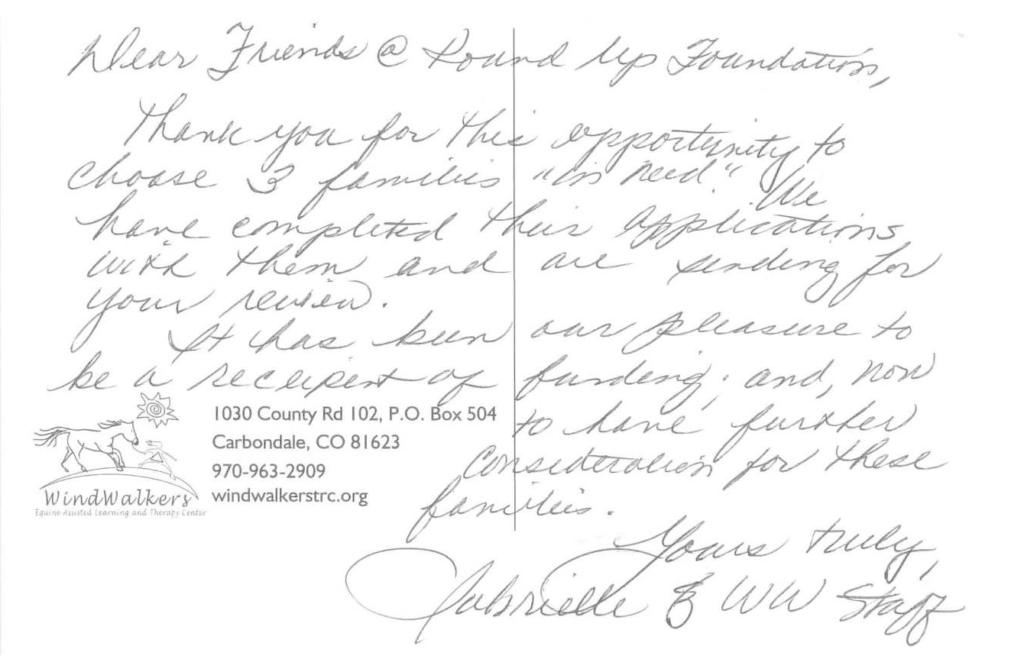 Dear Friends @ Round Up Foundation,
Thank you for this opportunity to
choose 3 families "in need." We
have completed their applications
with them and are sending for
your review.
It has been our pleasure to
be a receipent of funding; and, now
to have further
consideration for these
families.
Yours truly,
Gabrielle & WW Staff
1030 County Rd 102, P.O. Box 504
Carbondale, CO 81623
970-963-2909
windwalkerstrc.org
WindWalkers
Equine Assisted Learning and Therapy Center